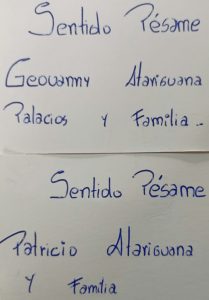 Sentido Pésame
Geovanny Atariguana
Palacios y Familia..
Sentido Pésame
Patricio Atariguana
y Familia